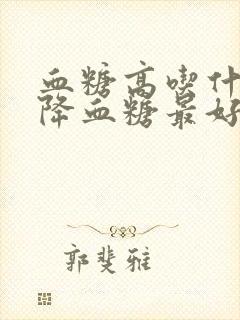 血糖高喫什
降血糖最好
郭斐雅